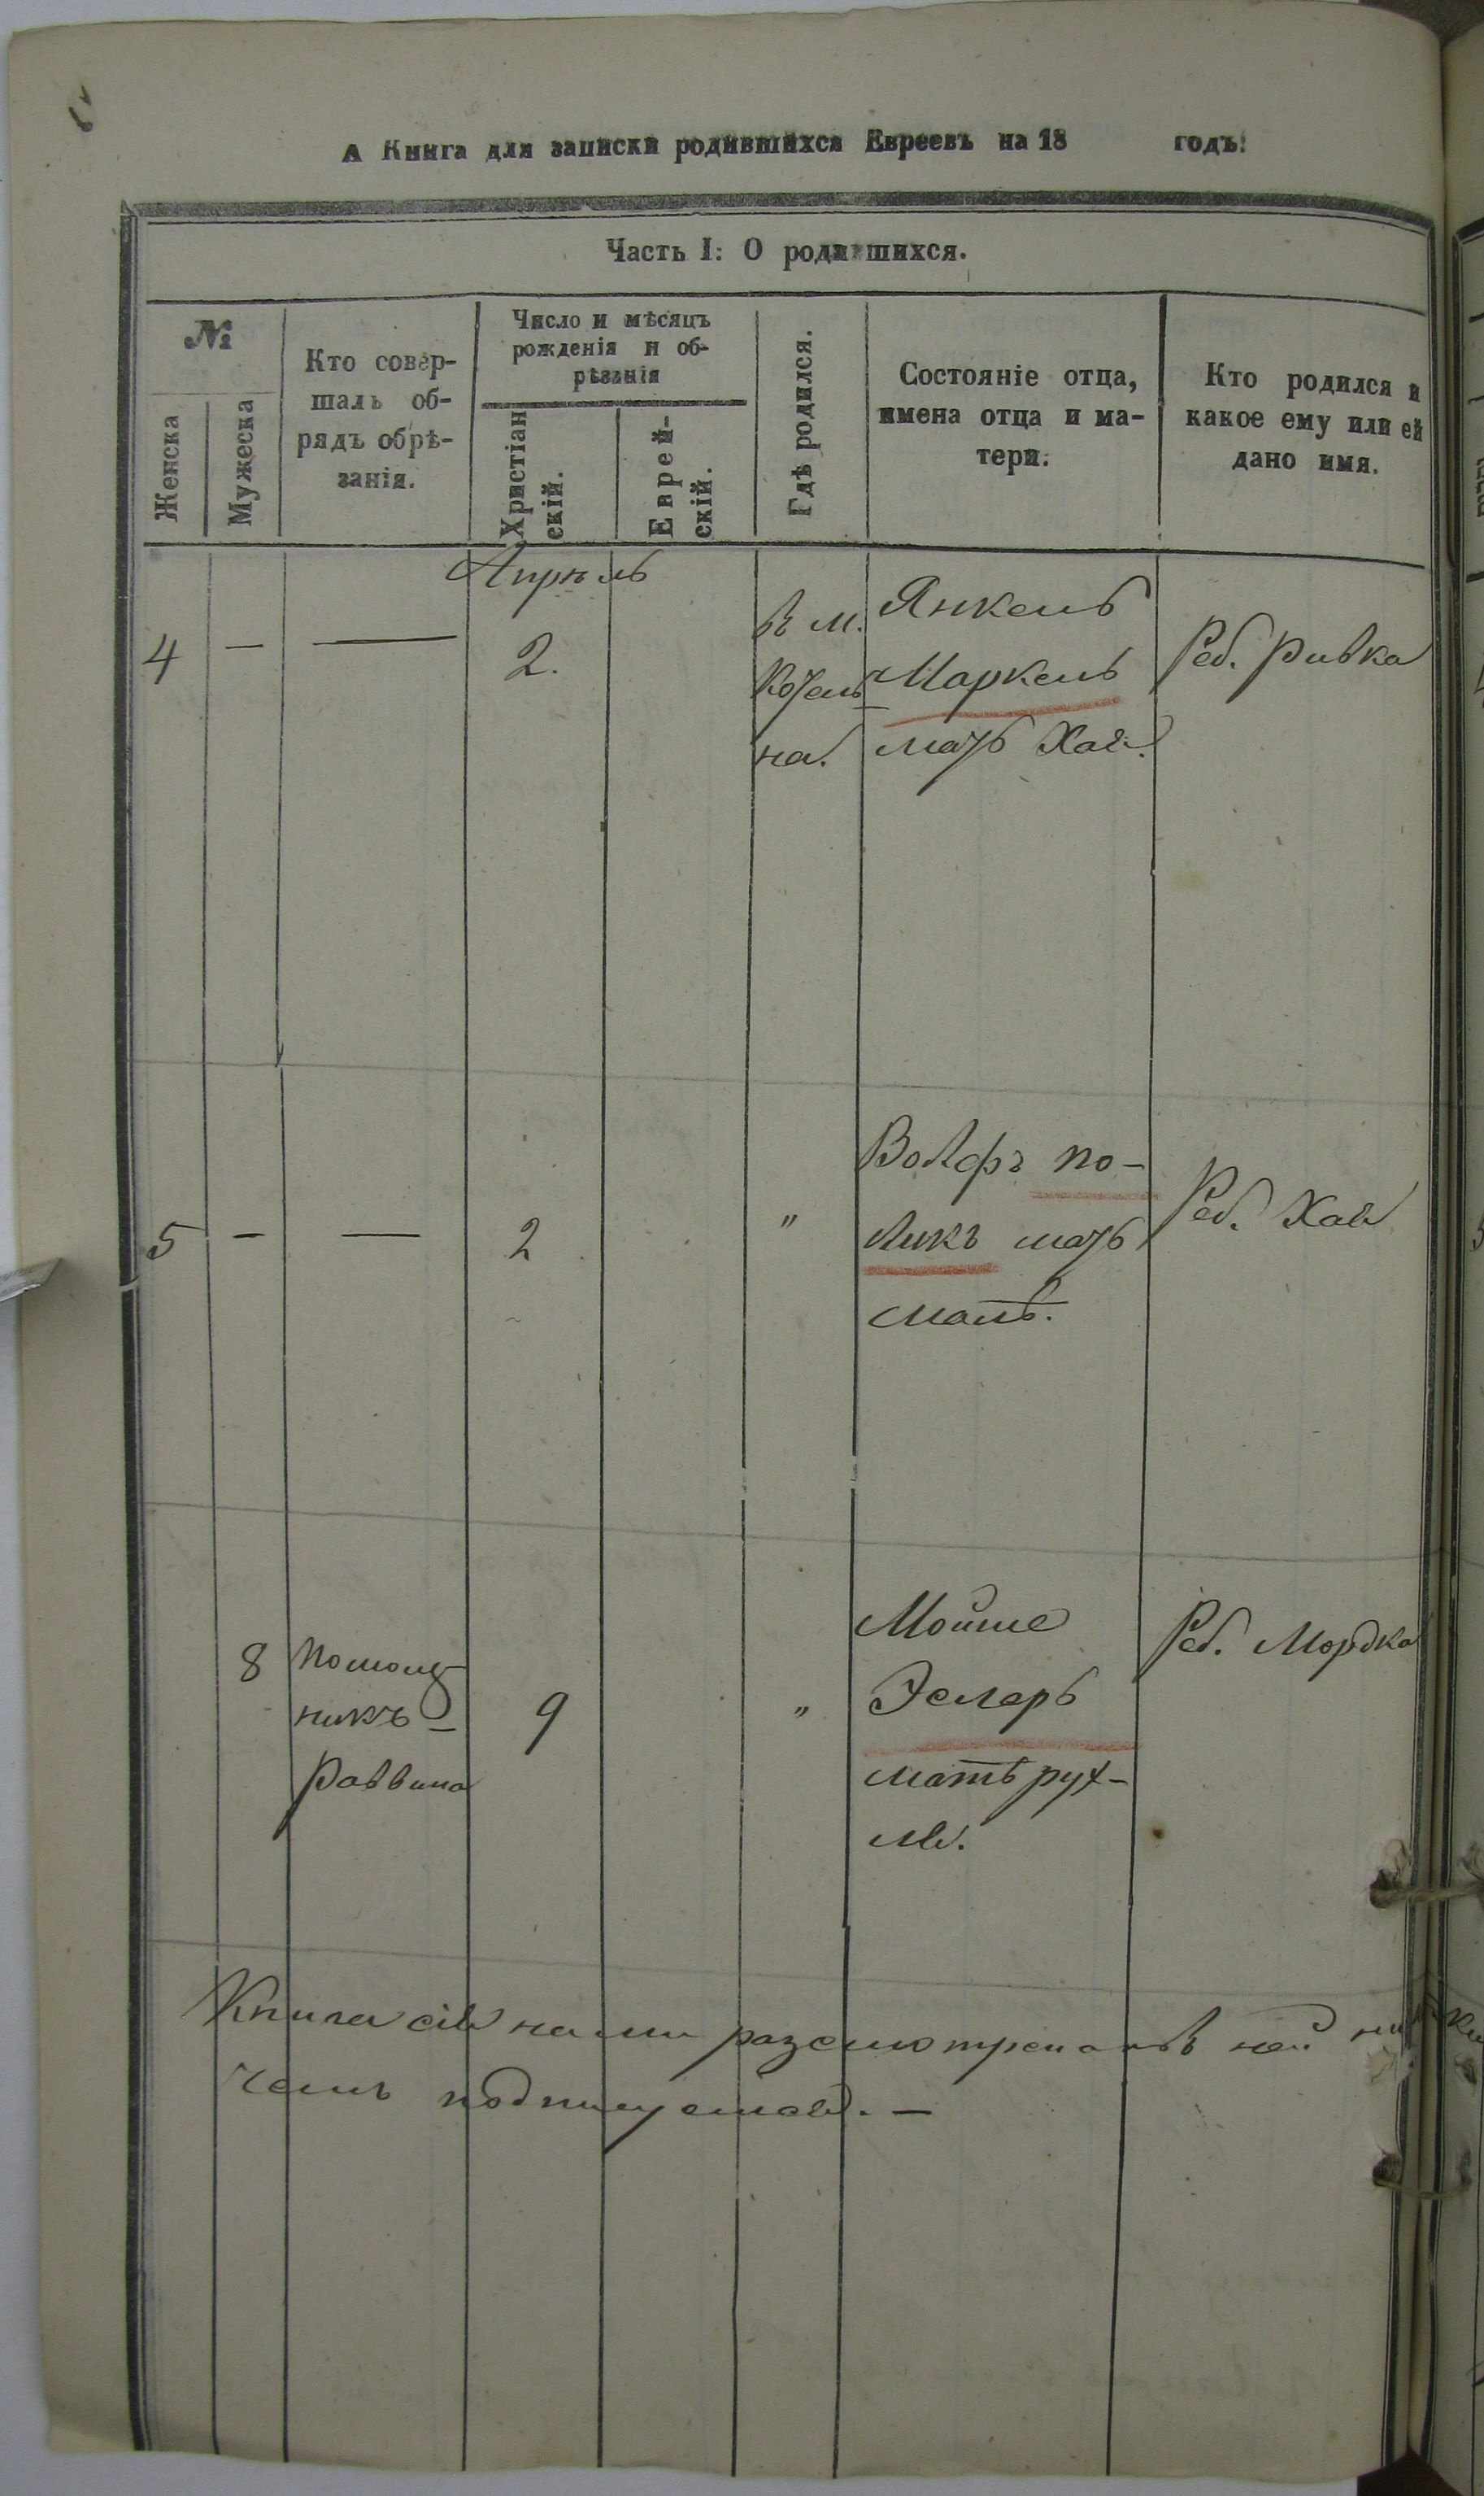 А Книга для записки родившихся Евреевъ на 18 годъ:
Часть I: О родившихся.
№
Женска
Мужеска
Кто совер-
шалъ об-
рядъ обрѣ-
занія.
Число и мѣсяцъ
рожденія и об-
рѣзанія
Христіан
скій.
Еврей-
скій.
Гдѣ родился.
Состояніе отца,
имена отца и ма-
тери.
Кто родился и
какое ему или ей
дано имя.
Апрѣль
4 — — 2.
въ м.
на.
Янкель
Маркель
мать Хая.
Реб. Ривка
5 — — 2 "
Вольфъ по-
ликъ мать
Реб. Хая
8
Помощ
никъ
Раввина
9 "
Мойше
Эслеръ
мать рух-
ля.
Реб. Мордка
Книга сія нами разсмотрена въ ней
чемъ подписуемся. —